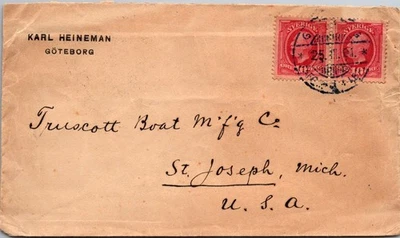 KARL HEINEMAN
GÖTEBORG
SVERIGE SVERIGE
10 10
Truscott Boat M'f'g Co
St. Joseph, Mich.
U. S. A.